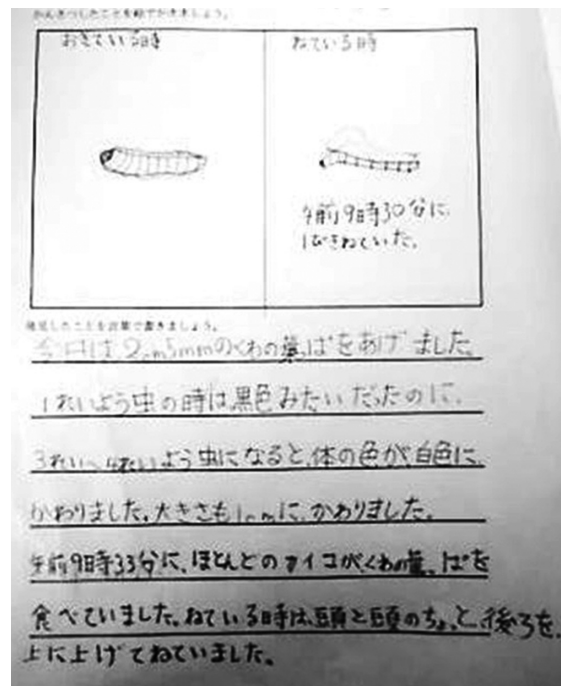 かんさつしたことを絵でかきましょう。
おきている時
ねている時
午前9時30分に、
1ぴきねていた。
確認したことを言葉で書きましょう。
今日は2cm5mmのくわの葉っぱをあげました。
1れいよう虫の時は黒色みたいだったのに、
3れい〜4れいよう虫になると、体の色が、白色に
かわりました。大きさも1cmに、かわりました。
午前9時33分に、ほとんどのカイコが、くわの葉っぱを
食べていました。ねている時は、頭と頭のちょっと後ろを、
上に上げてねていました。